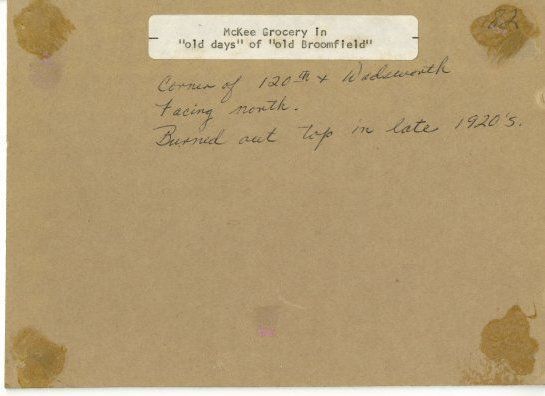 McKee Grocery in
"old days" of "old Broomfield"
182
Corner of 120th + Wadsworth
Facing north.
Burned out top in late 1920's.